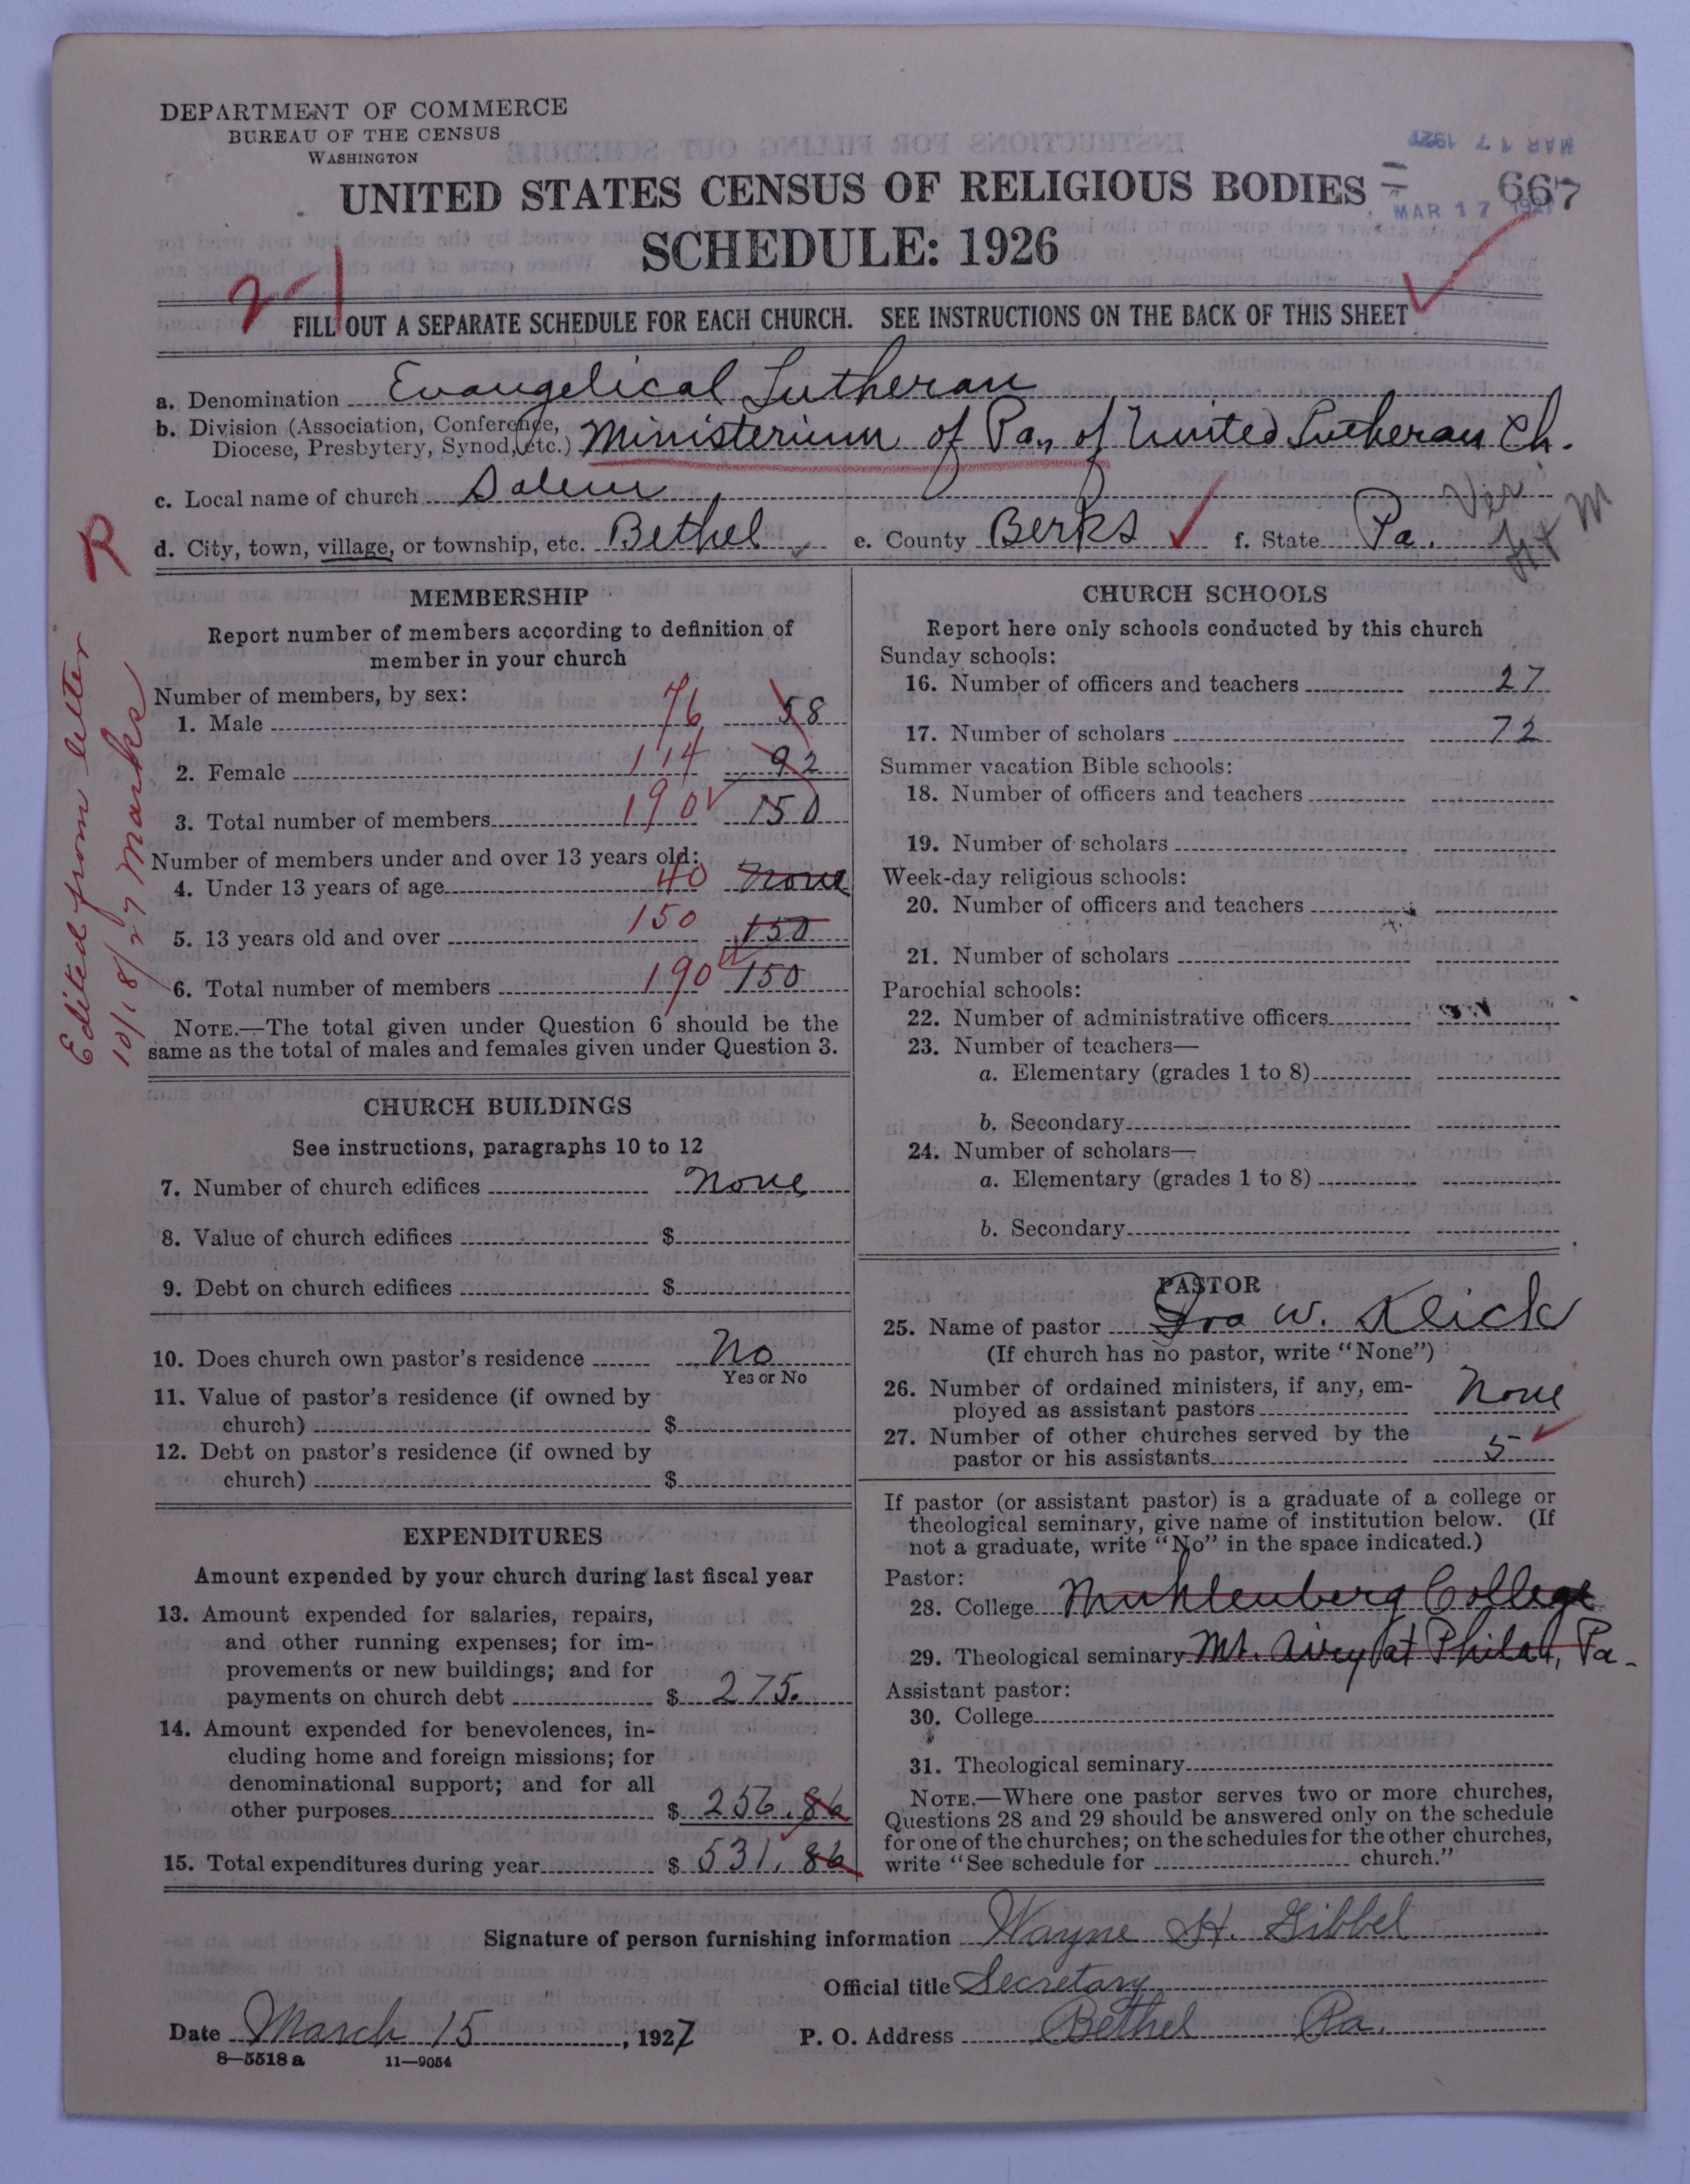 DEPARTMENT OF COMMERCE
BUREAU OF THE CENSUS
WASHINGTON
MAR 17 1927
UNITED STATES CENSUS OF RELIGIOUS BODIES
667
MAR 17 1927
SCHEDULE: 1926
21
FILL OUT A SEPARATE SCHEDULE FOR EACH CHURCH. SEE INSTRUCTIONS ON THE BACK OF THIS SHEET
a. Denomination Evangelical Lutheran
b. Division (Association, Conference,
Diocese, Presbytery, Synod, etc.) Ministerium of Pa., of United Lutheran Ch.
c. Local name of church Salem
d. City, town, village, or township, etc. Bethel e. County Berks f. State Pa.
R
Edited from letter
10/18/27 Marks
MEMBERSHIP
Report number of members according to definition of
member in your church
Number of members, by sex:
1. Male 76 58
2. Female 114 92
3. Total number of members 190 150
Number of members under and over 13 years old:
4. Under 13 years of age 40 none
5. 13 years old and over 150 150
6. Total number of members 190 150
NOTE.—The total given under Question 6 should be the
same as the total of males and females given under Question 3.
CHURCH BUILDINGS
See instructions, paragraphs 10 to 12
7. Number of church edifices none
8. Value of church edifices $
9. Debt on church edifices $
10. Does church own pastor's residence No
Yes or No
11. Value of pastor's residence (if owned by
church) $
12. Debt on pastor's residence (if owned by
church) $
EXPENDITURES
Amount expended by your church during last fiscal year
13. Amount expended for salaries, repairs,
and other running expenses; for im-
provements or new buildings; and for
payments on church debt $ 275.
14. Amount expended for benevolences, in-
cluding home and foreign missions; for
denominational support; and for all
other purposes $ 256.86
15. Total expenditures during year $ 531.86
CHURCH SCHOOLS
Report here only schools conducted by this church
Sunday schools:
16. Number of officers and teachers 27
17. Number of scholars 72
Summer vacation Bible schools:
18. Number of officers and teachers
19. Number of scholars
Week-day religious schools:
20. Number of officers and teachers
21. Number of scholars
Parochial schools:
22. Number of administrative officers
23. Number of teachers—
a. Elementary (grades 1 to 8)
b. Secondary
24. Number of scholars—
a. Elementary (grades 1 to 8)
b. Secondary
PASTOR
25. Name of pastor Ira W. Klick
(If church has no pastor, write "None")
26. Number of ordained ministers, if any, em-
ployed as assistant pastors none
27. Number of other churches served by the
pastor or his assistants 5
If pastor (or assistant pastor) is a graduate of a college or
theological seminary, give name of institution below. (If
not a graduate, write "No" in the space indicated.)
Pastor:
28. College Muhlenberg College
29. Theological seminary Mt. Airy at Philad, Pa.
Assistant pastor:
30. College
31. Theological seminary
NOTE.—Where one pastor serves two or more churches,
Questions 28 and 29 should be answered only on the schedule
for one of the churches; on the schedules for the other churches,
write "See schedule for church."
Signature of person furnishing information Wayne H. Gibbel
Official title Secretary
Date March 15, 1927 P. O. Address Bethel Pa.
8—5518 a 11—9054